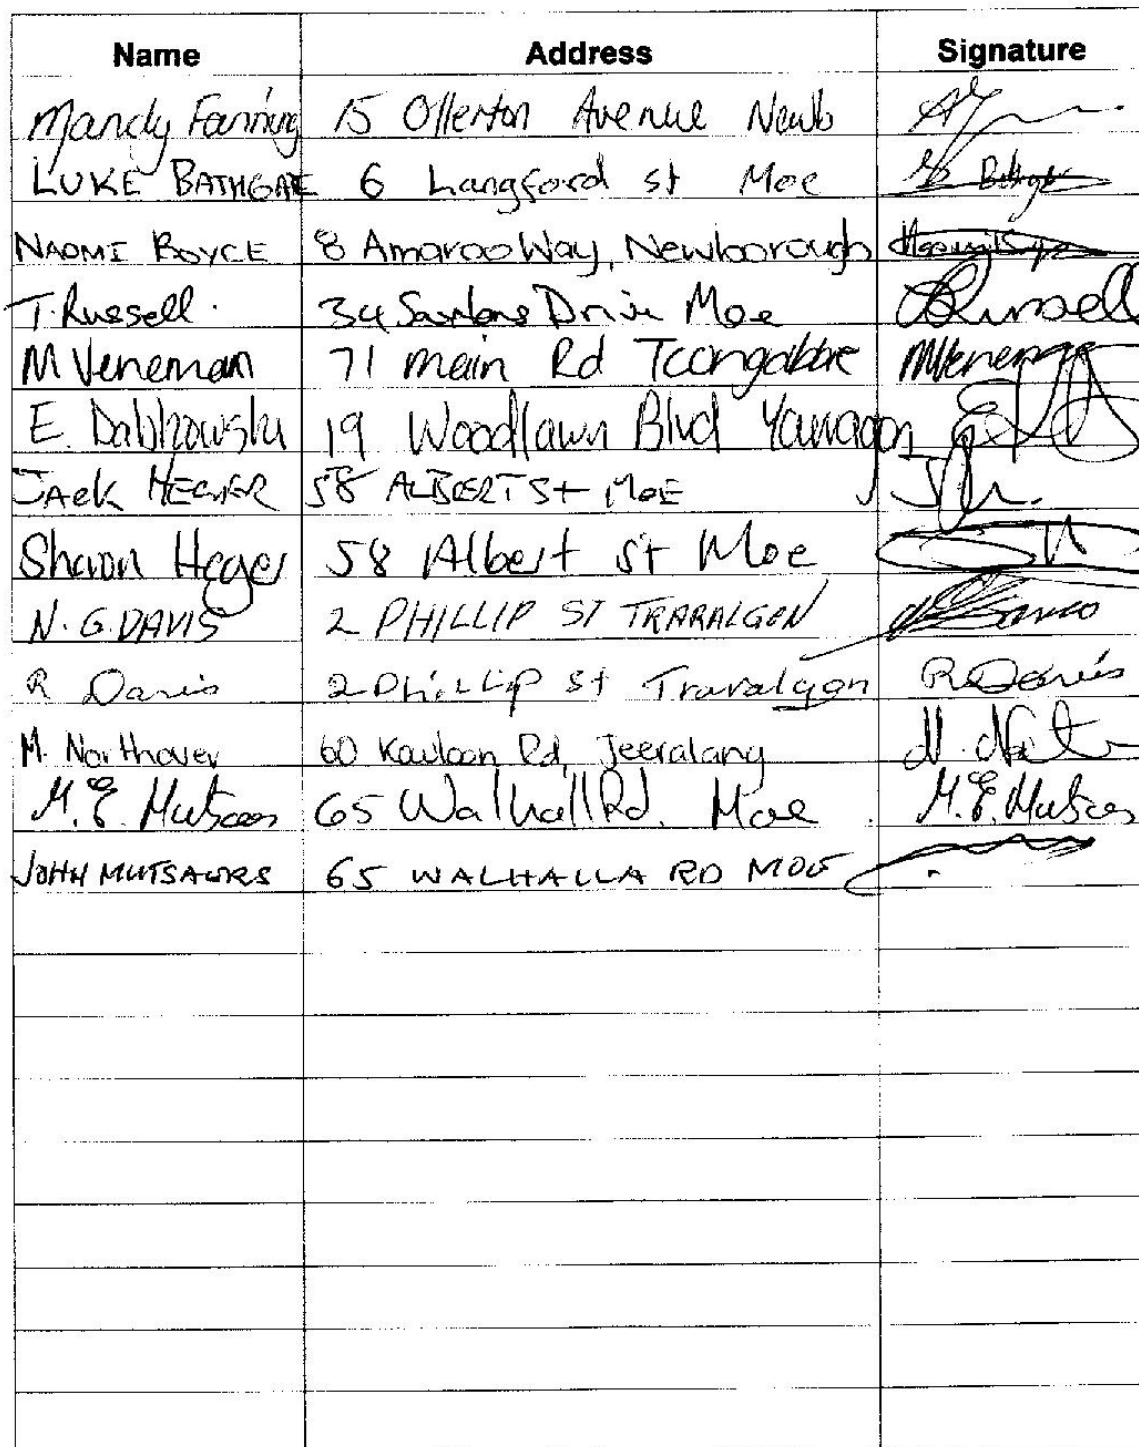 Name Address Signature
Mandy Fanning 15 Ollerton Avenue Newb
LUKE BATHGATE 6 Langford st Moe
NAOMI BOYCE 8 Amaroo Way, Newborough
T. Russell. 34 Drive Moe Russell
M Veneman 71 main Rd Toongabbie MVeneman
E. Dabkowski 19 Woodlawn Blvd
JAck HEGER 58 ALBERT St MOE
Sharon Heger 58 Albert st Moe
N. G. DAVIS 2 PHILLIP ST TRARALGON
R Davis 2 Phillip st Traralgon R Davis
M. Northover 60 Rd, Jeeralang
M. E. 65 Walhall Rd. Moe M. E.
JOHN MUTSAERS 65 WALHALLA RD MOE